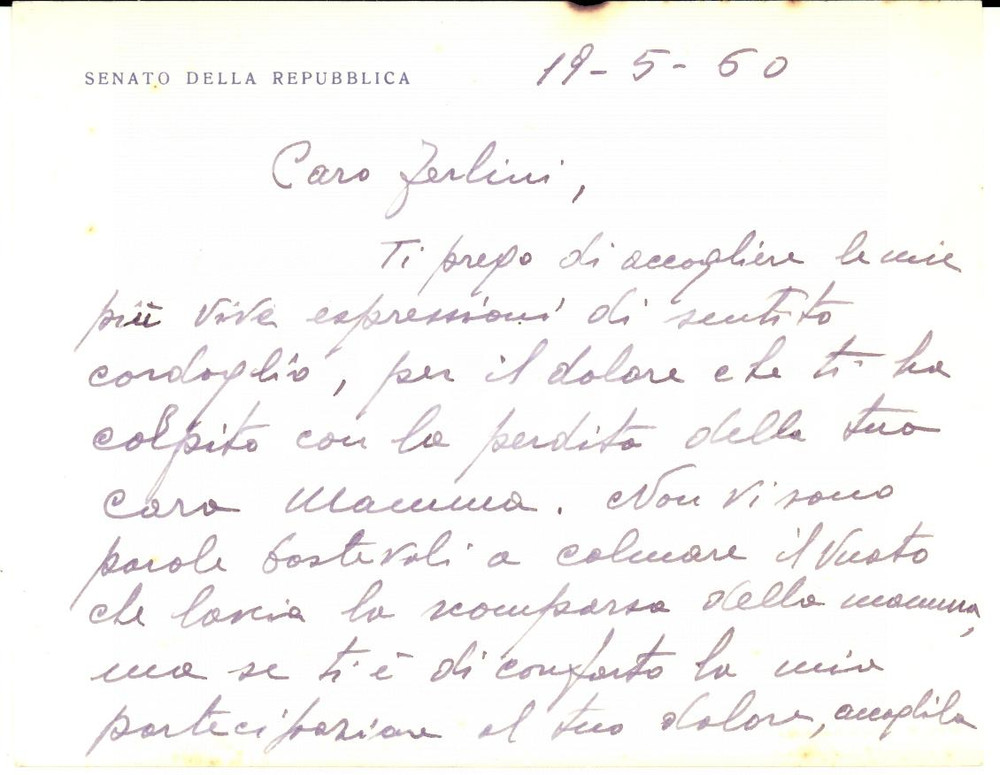 SENATO DELLA REPUBBLICA
19-5-60
Caro Zerlini,
Ti prego di accogliere le mie
più vive espressioni di sentito
cordoglio, per il dolore che ti ha
colpito con la perdita della tua
cara Mamma. Non vi sono
parole bastevoli a colmare il vuoto
che lascia la scomparsa della mamma,
ma se ti è di conforto la mia
partecipazione al tuo dolore, accoglila